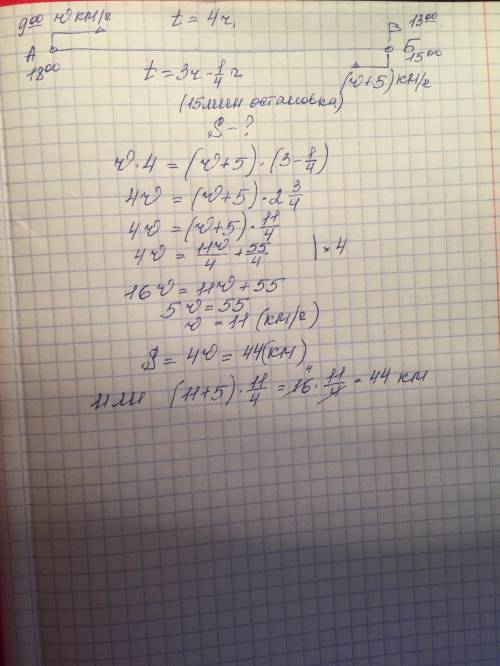 9⁰⁰ v км/г t = 4ч. В 13⁰⁰
А Б
18⁰⁰ 15⁰⁰
t = 3ч - 1/4 г (v+5) км/г
(15мин остановка)
S - ?
v · 4 = (v+5) · (3 - 1/4)
4v = (v+5) · 2 3/4
4v = (v+5) · 11/4
4v = 11v/4 + 55/4 | × 4
16v = 11v + 55
5v = 55
v = 11 (км/г)
S = 4v = 44 (км)
или (11+5) · 11/4 = 16 · 11/4 = 44 км